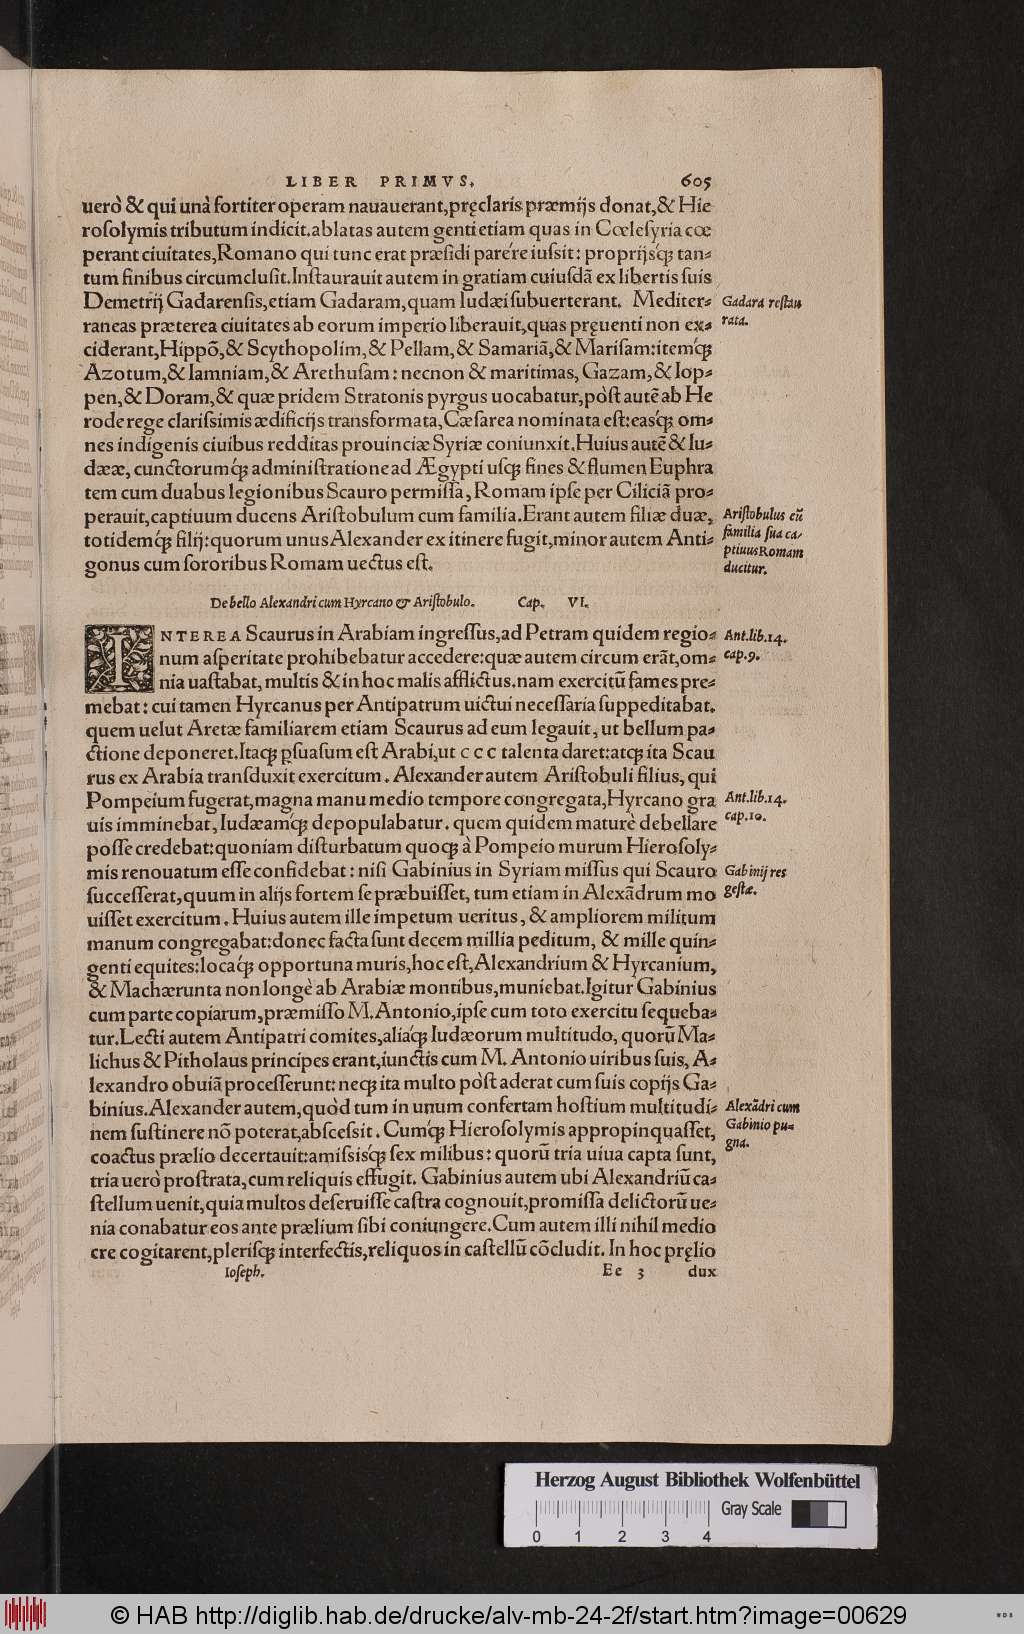 LIBER PRIMVS. 605
uerò & qui unà fortiter operam nauauerant, pręclaris præmijs donat, & Hie
roſolymis tributum indicit. ablatas autem genti etiam quas in Cœleſyria cœ
perant ciuitates, Romano qui tunc erat præſidi parére iuſsit: proprijsq́ꝫ tan-
tum finibus circumcluſit. Inſtaurauit autem in gratiam cuiuſdã ex libertis ſuis
Demetrij Gadarenſis, etiam Gadaram, quam Iudæi ſubuerterant. Mediter-
Gadara reſtau
raneas præterea ciuitates ab eorum imperio liberauit, quas pręuenti non ex-
rata.
ciderant, Hippõ, & Scythopolim, & Pellam, & Samariã, & Mariſam: itemq́ꝫ
Azotum, & Iamniam, & Arethuſam: necnon & maritimas, Gazam, & Iop-
pen, & Doram, & quæ pridem Stratonis pyrgus uocabatur, pòſt autẽ ab He
rode rege clariſsimis ædificijs transformata, Cæſarea nominata eſt: easq́ꝫ om-
nes indigenis ciuibus redditas prouinciæ Syriæ coniunxit. Huius autẽ & Iu-
dææ, cunctorumq́ꝫ adminiſtratione ad Ægypti uſqꝫ fines & flumen Euphra
tem cum duabus legionibus Scauro permiſſa, Romam ipſe per Ciliciã pro-
perauit, captiuum ducens Ariſtobulum cum familia. Erant autem filiæ duæ,
Ariſtobulus cũ
totidemq́ꝫ filij: quorum unus Alexander ex itinere fugit, minor autem Anti-
familia ſua ca-
ptiuus Romam
gonus cum ſororibus Romam uectus eſt.
ducitur.
De bello Alexandri cum Hyrcano & Ariſtobulo. Cap. VI.
INTEREA Scaurus in Arabiam ingreſſus, ad Petram quidem regio-
Ant. lib. 14.
num aſperitate prohibebatur accedere: quæ autem circum erãt, om-
cap. 9.
nia uaſtabat, multis & in hoc malis afflictus. nam exercitũ fames pre-
mebat: cui tamen Hyrcanus per Antipatrum uictui neceſſaria ſuppeditabat.
quem uelut Aretæ familiarem etiam Scaurus ad eum legauit, ut bellum pa-
ctione deponeret. Itaqꝫ ꝑſuaſum eſt Arabi, ut c c c talenta daret: atqꝫ ita Scau
rus ex Arabia tranſduxit exercitum. Alexander autem Ariſtobuli filius, qui
Pompeium fugerat, magna manu medio tempore congregata, Hyrcano gra
Ant. lib. 14.
uis imminebat, Iudæamq́ꝫ depopulabatur. quem quidem maturè debellare
cap. 10.
poſſe credebat: quoniam diſturbatum quoqꝫ à Pompeio murum Hieroſoly-
mis renouatum eſſe confidebat: niſi Gabinius in Syriam miſſus qui Scauro
Gabinij res
ſucceſſerat, quum in alijs fortem ſe præbuiſſet, tum etiam in Alexãdrum mo
geſtæ.
uiſſet exercitum. Huius autem ille impetum ueritus, & ampliorem militum
manum congregabat: donec facta ſunt decem millia peditum, & mille quin-
genti equites: locaq́ꝫ opportuna muris, hoc eſt, Alexandrium & Hyrcanium,
& Machærunta non longè ab Arabiæ montibus, muniebat. Igitur Gabinius
cum parte copiarum, præmiſſo M. Antonio, ipſe cum toto exercitu ſequeba-
tur. Lecti autem Antipatri comites, aliaq́ꝫ Iudæorum multitudo, quorũ Ma-
lichus & Pitholaus principes erant, iunctis cum M. Antonio uiribus ſuis, A-
lexandro obuiã proceſſerunt: neqꝫ ita multo pòſt aderat cum ſuis copijs Ga-
binius. Alexander autem, quòd tum in unum confertam hoſtium multitudi-
Alexãdri cum
nem ſuſtinere nõ poterat, abſceſsit. Cumq́ꝫ Hieroſolymis appropinquaſſet,
Gabinio pu-
coactus prælio decertauit: amiſsisq́ꝫ ſex milibus: quorũ tria uiua capta ſunt,
gna.
tria uerò proſtrata, cum reliquis effugit. Gabinius autem ubi Alexandriũ ca-
ſtellum uenit, quia multos deſeruiſſe caſtra cognouit, promiſſa delictorũ ue-
nia conabatur eos ante prælium ſibi coniungere. Cum autem illi nihil medio
cre cogitarent, pleriſqꝫ interfectis, reliquos in caſtellũ cõcludit. In hoc pręlio
Ioſeph. Ee 3 dux
Herzog August Bibliothek Wolfenbüttel
Gray Scale
0 1 2 3 4
© HAB http://diglib.hab.de/drucke/alv-mb-24-2f/start.htm?image=00629